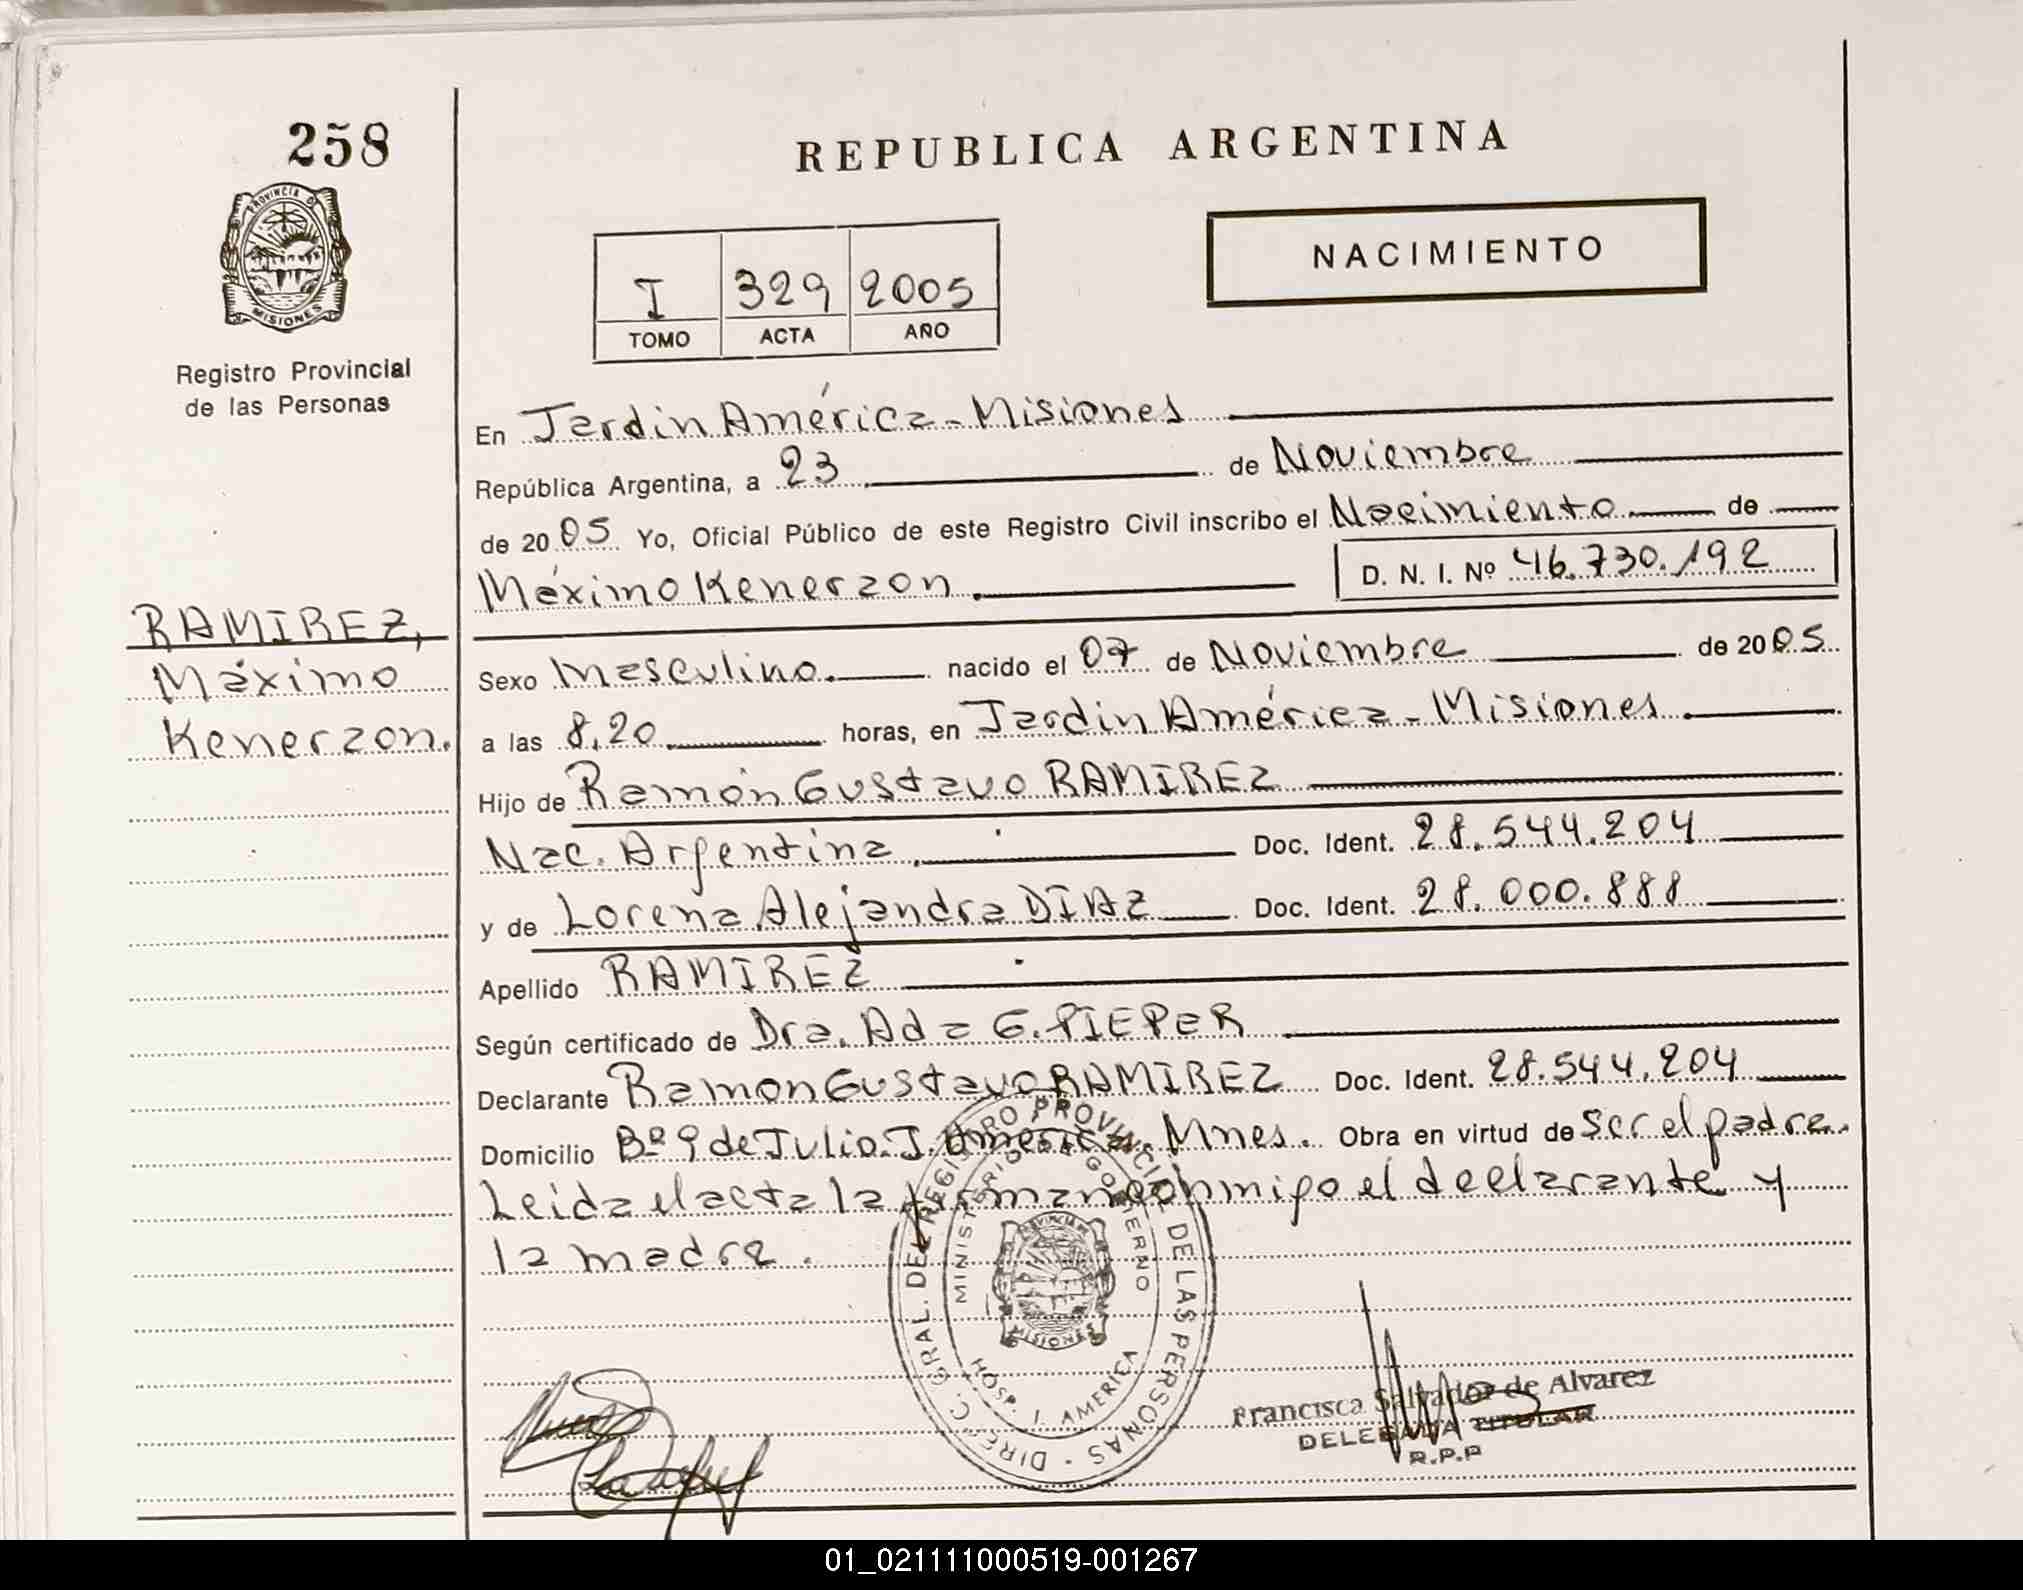 258
PROVINCIA D
MISIONES
Registro Provincial
de las Personas
RAMIREZ,
Máximo
Kenerzon.
REPUBLICA ARGENTINA
I 329 2005
TOMO ACTA AÑO
NACIMIENTO
En Jardín América - Misiones
República Argentina, a 23 de Noviembre
de 2005 Yo, Oficial Público de este Registro Civil inscribo el Nacimiento de
Máximo Kenerzon. D. N. I. Nº 46.730.192
Sexo Masculino. nacido el 07 de Noviembre de 2005
a las 8,20 horas, en Jardín América - Misiones
Hijo de Ramón Gustavo RAMIREZ
Nac. Argentina Doc. Ident. 28.544.204
y de Lorena Alejandra DIAZ Doc. Ident. 28.000.888
Apellido RAMIREZ
Según certificado de Dra. Ada G. PIEPER
Declarante Ramon Gustavo RAMIREZ Doc. Ident. 28.544.204
Domicilio Bº 9 de Julio. J. América. Mnes. Obra en virtud de ser el padre.
Leida el acta la firman conmigo el declarante y
la madre.
DIREC. GRAL. DEL REGISTRO PROVINCIAL DE LAS PERSONAS
MINISTERIO DE GOBIERNO
PROVINCIA DE
MISIONES
HOSP. J. AMERICA
Francisca Salvador de Alvarez
DELEGADA TITULAR
R.P.P
01_021111000519-001267